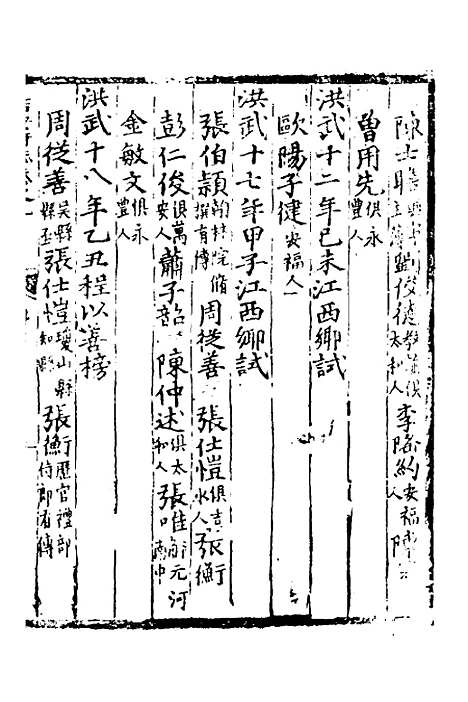 俊德 李 約安福人
曾用先俱永豐人
洪武十二年己未江西鄉試
歐陽子健安福人
洪武十七年甲子江西鄉試
張伯頴翰林院脩撰有傳 周從善 張仕愷俱吉水人 張衡
彭仁俊俱萬安人 蕭子韶 陳仲述俱太和人 張唯解元河南中
金敏文俱永豐人
洪武十八年乙丑程以善榜
周從善吳縣縣丞 張仕愷瓊山縣知縣 張衡歷官禮部侍郎有傳